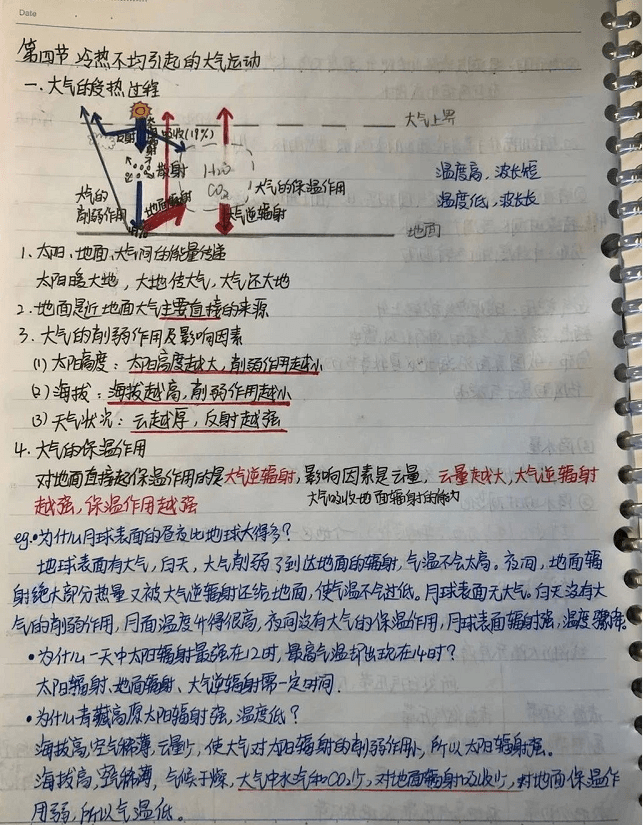 Date
第四节 冷热不均引起的大气运动
一.大气的受热过程
大气上界
反射
太阳辐射
吸收(19%)
散射
H₂O
CO₂
大气的保温作用
温度高,波长短
温度低,波长长
大气的
削弱作用
地面辐射
大气逆辐射
地面
1.太阳、地面、大气间的能量传递
太阳暖大地,大地传大气,大气还大地
2.地面是近地面大气主要直接的来源
3.大气的削弱作用及影响因素
(1)太阳高度:太阳高度越大,削弱作用越小
(2)海拔:海拔越高,削弱作用越小
(3)天气状况:云越厚,反射越强
4.大气的保温作用
对地面直接起保温作用的是大气逆辐射,影响因素是云量,云量越大,大气逆辐射
越强,保温作用越强
大气吸收地面辐射的能力
eg.•为什么月球表面的昼夜比地球大得多?
地球表面有大气,白天,大气削弱了到达地面的辐射,气温不会太高。夜间,地面辐
射绝大部分热量又被大气逆辐射还给地面,使气温不会过低。月球表面无大气。白天没有大
气的削弱作用,月面温度升得很高,夜间没有大气的保温作用,月球表面辐射强,温度骤降。
•为什么一天中太阳辐射最强在12时,最高气温却出现在14时?
太阳辐射、地面辐射、大气逆辐射需一定时间.
•为什么青藏高原太阳辐射强,温度低?
海拔高,空气稀薄,云量少,使大气对太阳辐射的削弱作用小,所以太阳辐射强。
海拔高,空气稀薄,气候干燥,大气中水气和CO₂少,对地面辐射吸收少,对地面保温作
用弱,所以气温低。